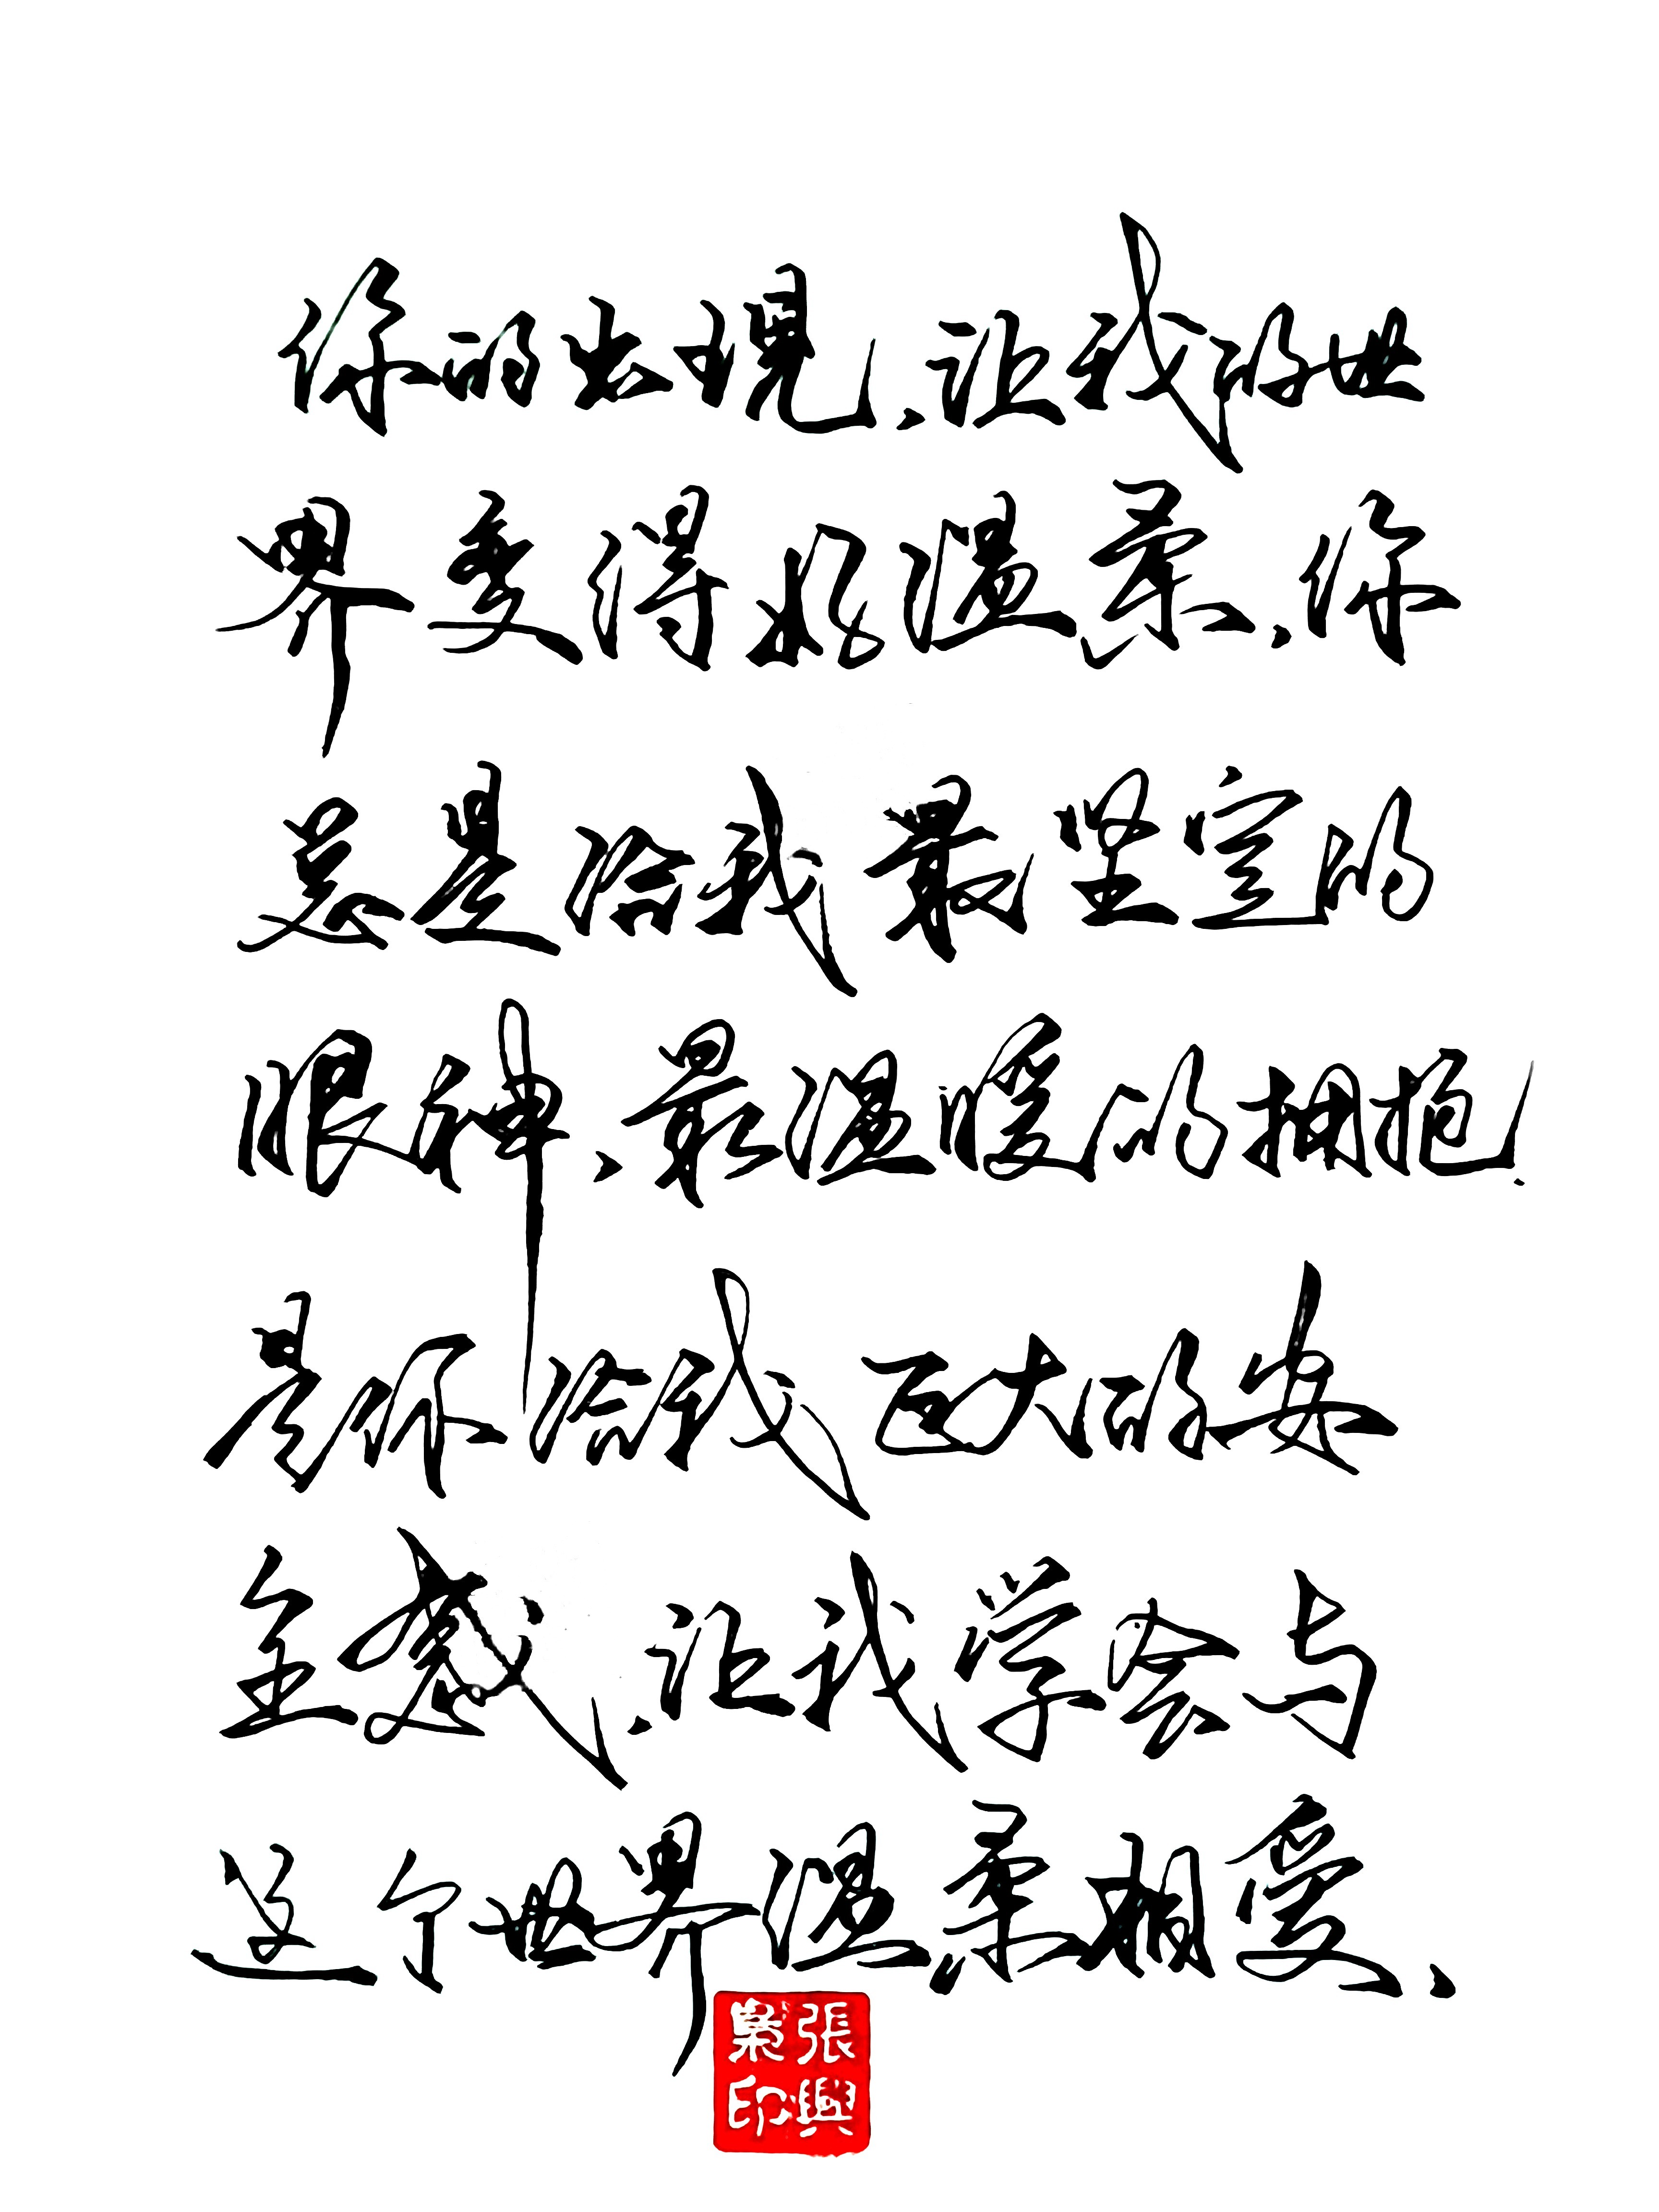 你的出现，让我的世
界变得很温柔，你
总是给我最坚定的
眼神、最温暖的拥抱！
是你给我巨大的安
全感，让我学会与
这个世界温柔相爱、
張興業印